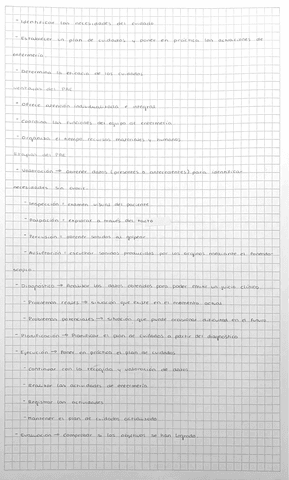 * Identificar las necesidades del cuidado
* Establecer un plan de cuidados y poner en práctica las actuaciones de
enfermería
* Determinar la eficacia de los cuidados
Ventajas del PAE
* Ofrece atención individualizada e integral
* Coordina las funciones del equipo de enfermería
* Disponible el tiempo, recursos materiales y humanos
Etapas del PAE
* Valoración → obtener datos (presentes o antecedentes) para identificar
necesidades sin cubrir.
* Inspección: examen visual del paciente
* Palpación: explorar a través del tacto
* Percusión: obtener sonidos al golpear
* Auscultación: escuchar sonidos producidos por los órganos mediante el fonendo-
scopio
* Diagnóstico → Analizar los datos obtenidos para poder emitir un juicio clínico
* Problemas reales → situación que existe en el momento actual
* Problemas potenciales → situación que puede ocasionar dificultad en el futuro
* Planificación → Planificar el plan de cuidados a partir del diagnóstico
* Ejecución → Poner en práctica el plan de cuidados
* Continuar con la recogida y valoración de datos
* Realizar las actividades de enfermería
* Registrar las actividades
* Mantener el plan de cuidados actualizado
* Evaluación → Comprobar si los objetivos se han logrado